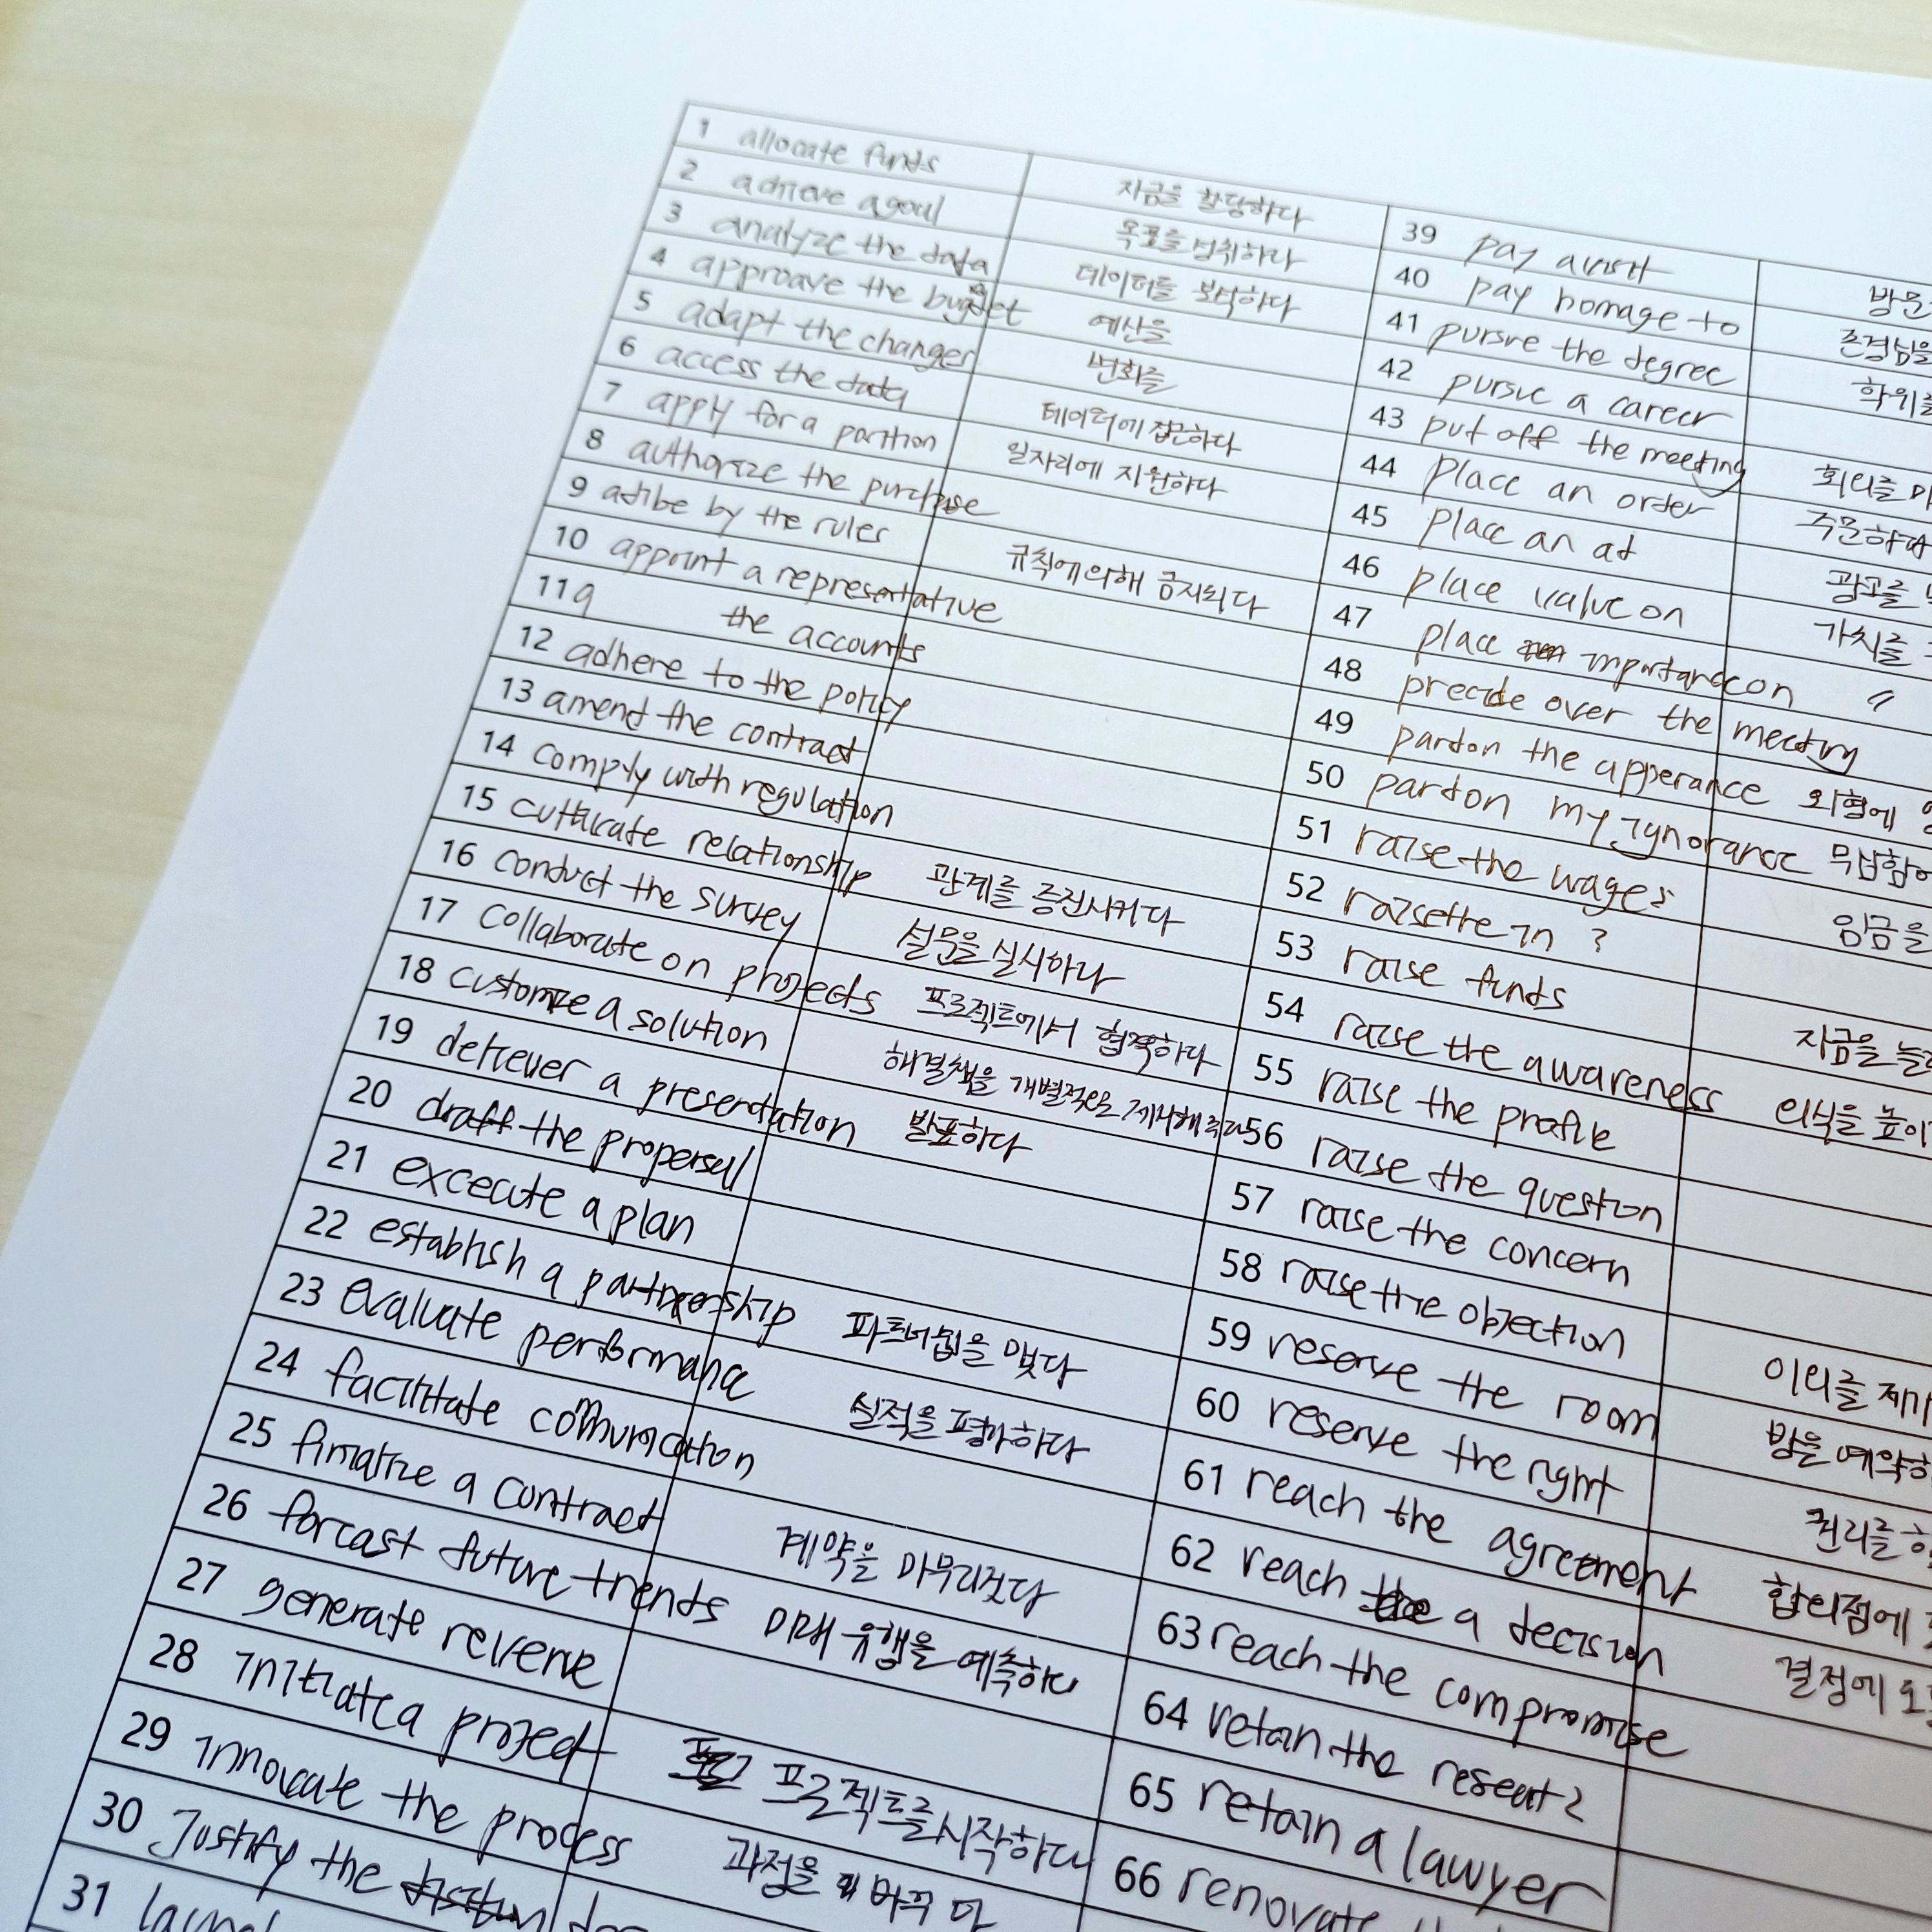 1 allocate funds 자금을 할당하다
2 achieve a goal 목표를 성취하다
3 analyze the data 데이터를 분석하다
4 approave the budget 예산을
5 adapt the changer 변화를
6 access the data 데이터에 접근하다
7 apply for a position 일자리에 지원하다
8 authorize the purchase
9 adibe by the rules 규칙에 의해 금지되다
10 appoint a representative
11 a the accounts
12 adhere to the policy
13 amend the contract
14 comply with regulation
15 cultivate relationship 관계를 증진시키다
16 conduct the survey 설문을 실시하다
17 collaborate on projects 프로젝트에서 협력하다
18 customize a solution 해결책을 개별적으로
19 deliever a presentation 발표하다
20 draft the propersal
21 excecute a plan
22 establish a partnership 파트너쉽을 맺다
23 evaluate performance 실적을 평가하다
24 facilitate communication
25 finalize a contract 계약을 마무리짓다
26 forcast future trends 미래 유행을 예측하다
27 generate revenue
28 initiate a project 프로젝트를 시작하다
29 innovate the process 과정을 바꾸다
30 Justify the
31
39 pay a visit 방문
40 pay homage to 존경심을
41 pursue the degree 학위를
42 pursue a career
43 put off the meeting 회의를
44 place an order 주문하다
45 place an ad 광고를
46 place value on 가치를
47 place importance on 〃
48 precide over the meeting
49 pardon the apperance 외형에
50 pardon my ignorance 무납함에
51 raise the wages 임금을
52 raise the in ?
53 raise funds 자금을
54 raise the awareness 인식을 높이
55 raise the profile
56 raise the question
57 raise the concern
58 raise the objection 이의를 제기
59 reserve the room 방을 예약하
60 reserve the right 권리를
61 reach the agreement 합의점에
62 reach a decision 결정에
63 reach the compromise
64 retain the
65 retain a lawyer
66 renovate